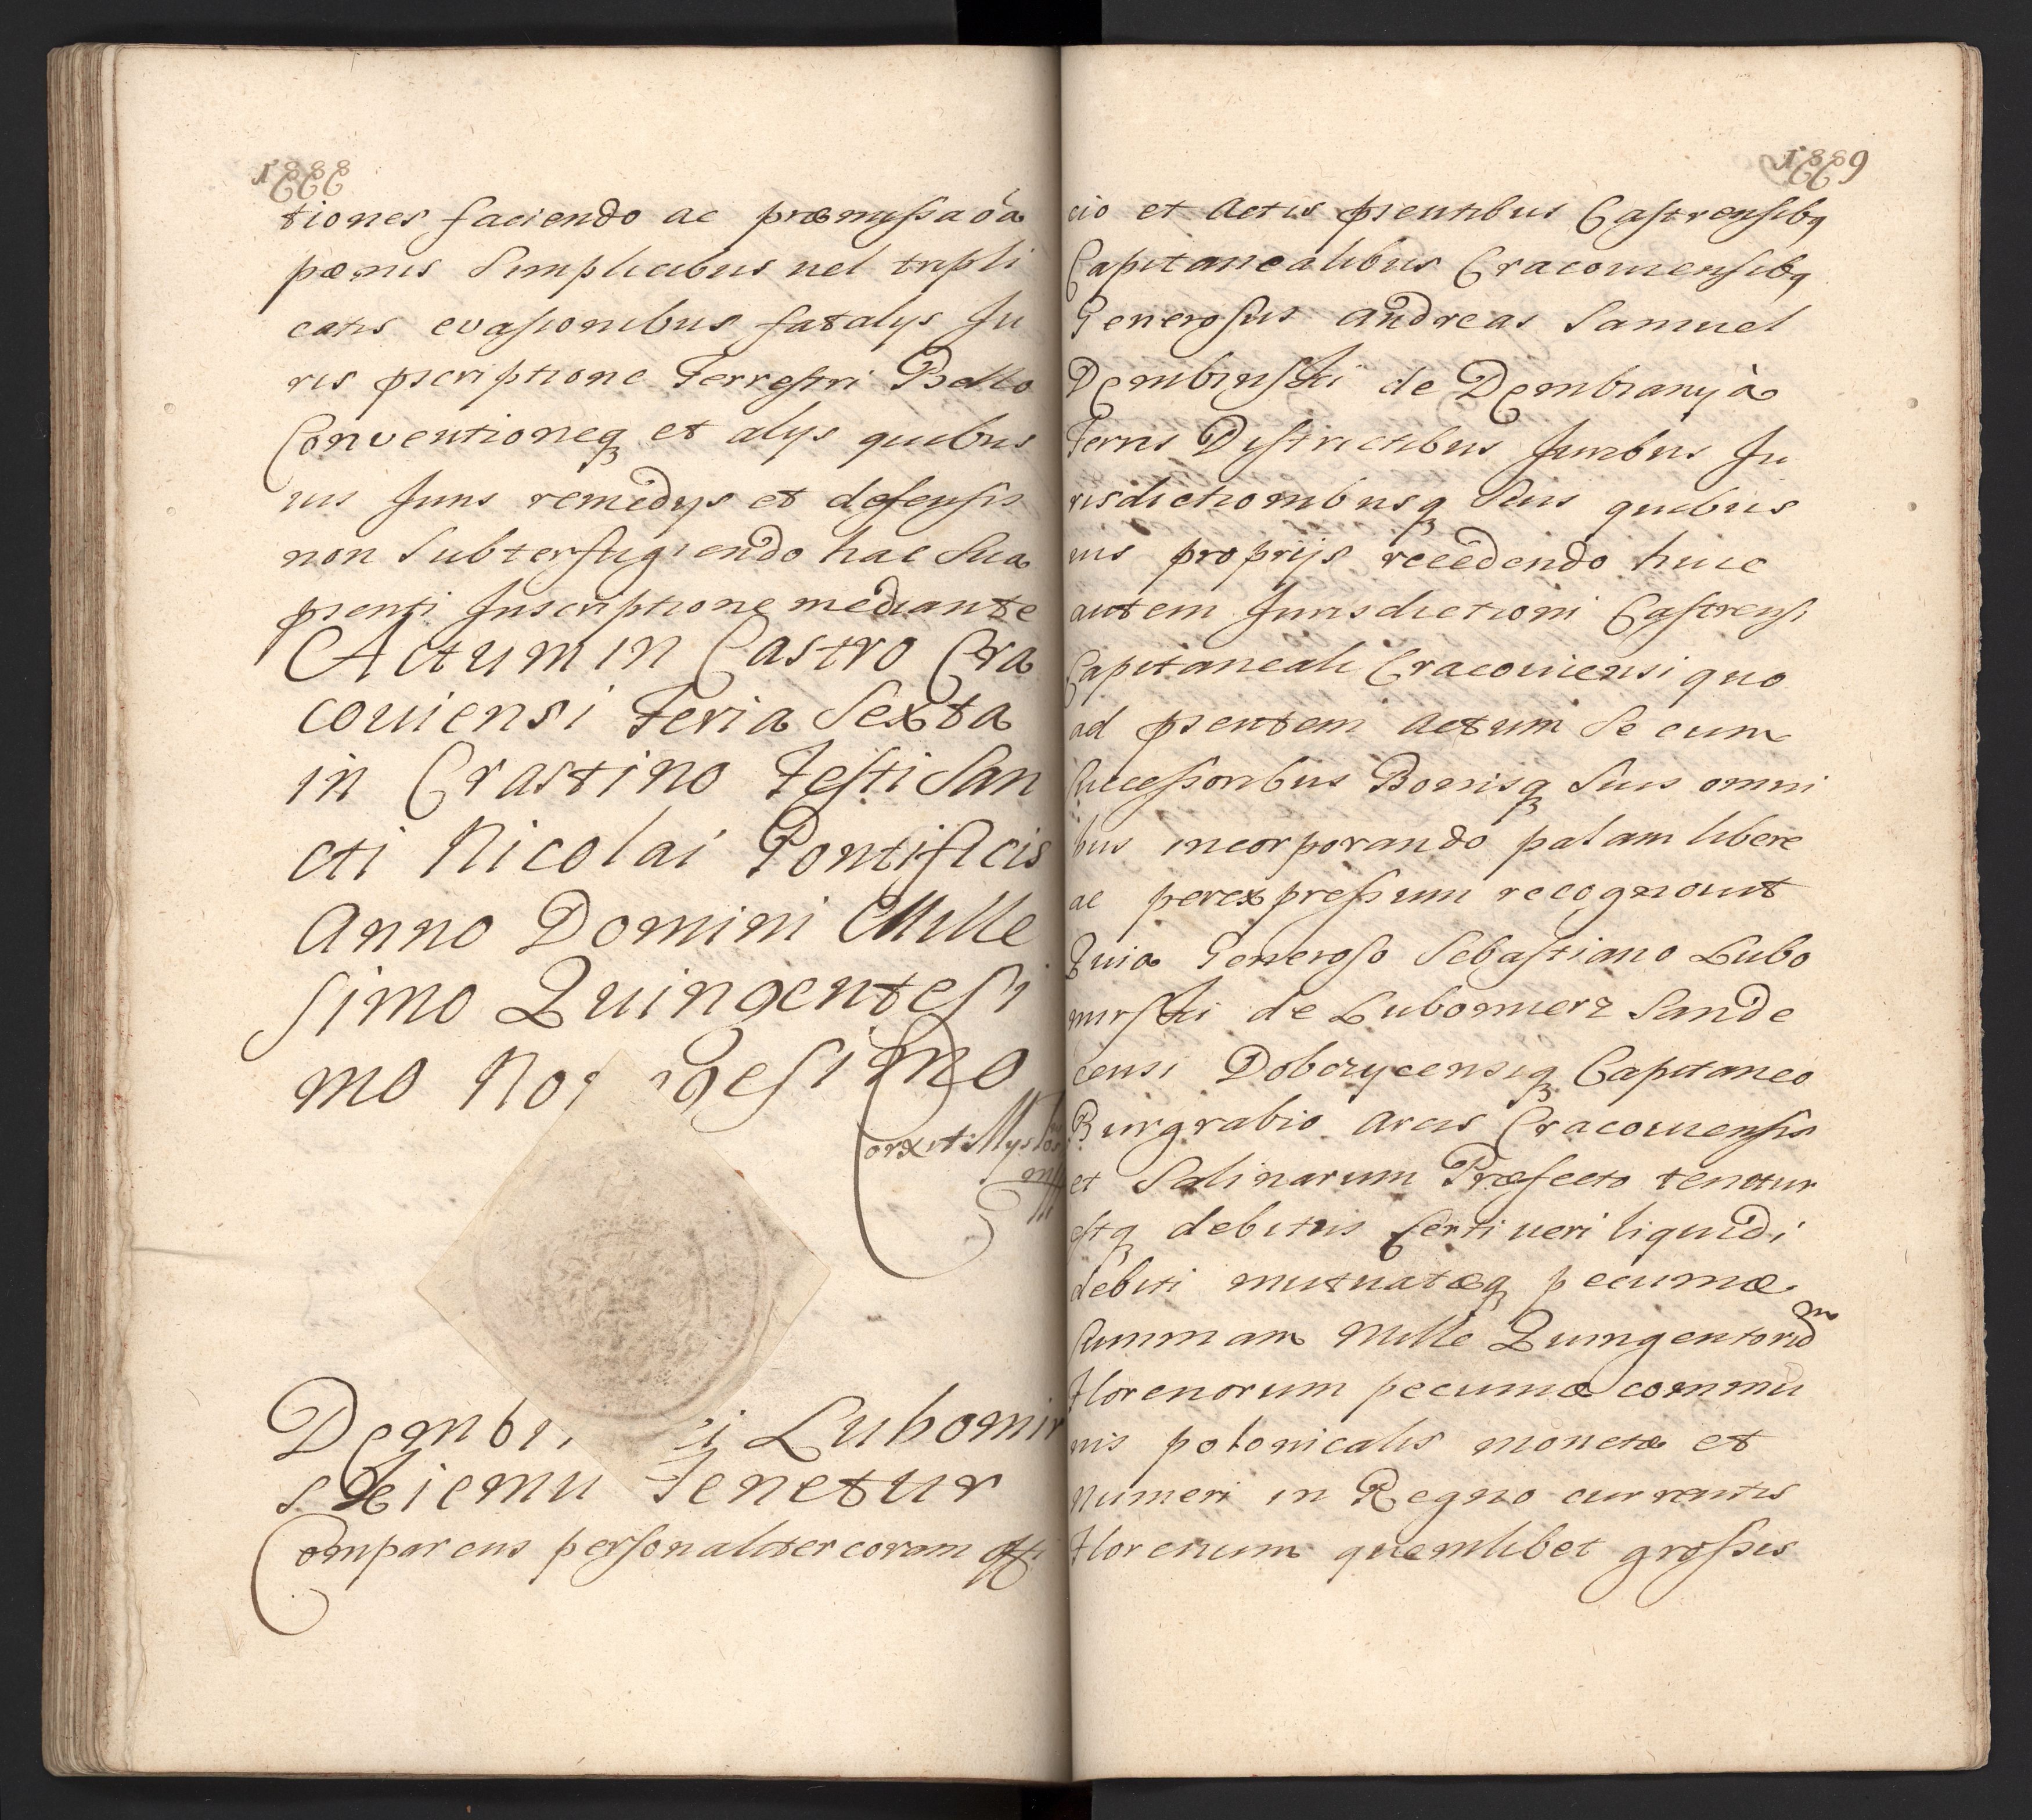 1888
tiones faciendo ac præmissa oa
pœnis Simplicibus vel tripli
catis evasionibus fatalys Ju
ris pscriptione Terrestri Bello
Conventioneq et alys quibus
vis Juris remedys et defensis
non Subterfugiendo hac Sua
psenti Inscriptione mediante
Actum in Castro Cra
coviensi Feria Sexta
in Crastino Festi San
cti Nicolai Pontificis
Anno Domini Mille
simo Quingentesi
mo No gesimo
Lubomir
skiemu Tenetur
Comparens personaliter coram offi
1889
cio et Actis psentibus Castrensibq
Capitanealibus Cracoviensibq
Generosus Andreas Samuel
Dembinski de Dembiany à
Terris Districtibus Juribus Ju
risdictionibusq Suis quibus
vis proprijs recedendo huic
autem Jurisdictioni Castrensi
Capitaneali Cracoviensi quo
ad psentem Actum Se cum
Successoribus Bonisq Suis omni
bus incorporando palam libere
ac per expressum recognovit
Quia Generoso Sebastiano Lubo
mirski de Lubomierz Sande
censi Dobczycensiq Capitaneo
Burgrabio Arcis Cracoviensis
et Salinarum Præfecto tenetur
estq debitus Certi veri liquidi
debiti mutuatæq pecuniæ
Summam Mille Quingentorum
Florenorum pecuniæ commu
nis polonicalis monetæ et
Numeri in Regno currentis
Florenum quemlibet grossis